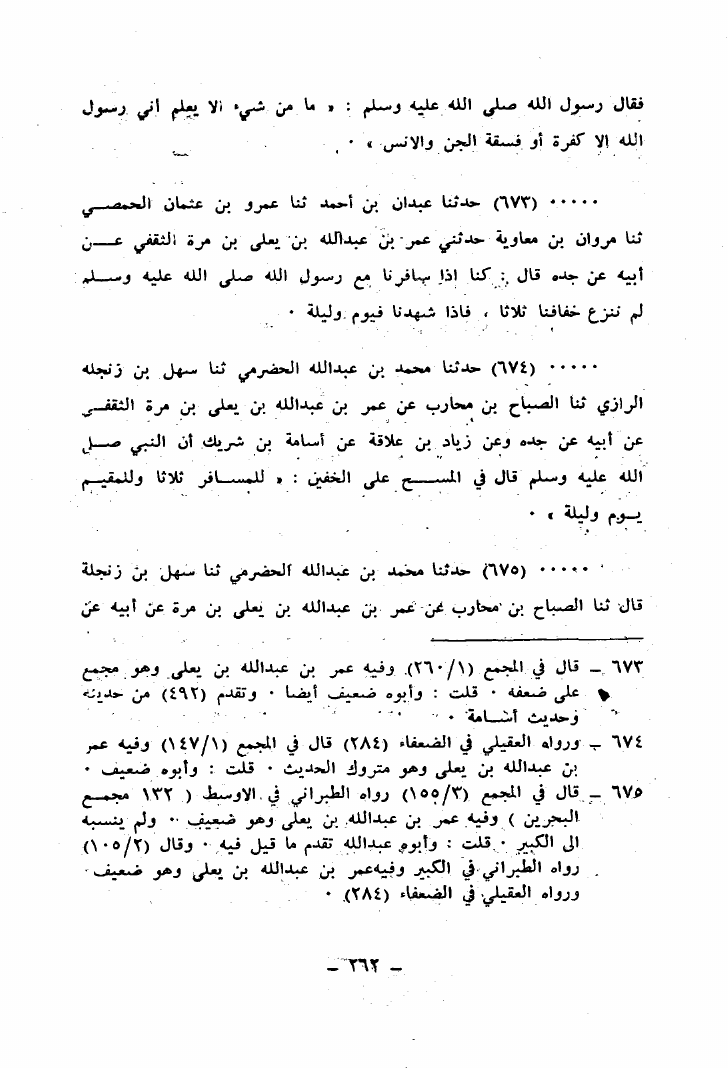 فقال رسول الله صلى الله عليه وسلم : « ما من شيء الا يعلم أني رسول
الله إلا كفرة أو فسقة الجن والانس » ٠
٠٠٠٠٠ (٦٧٣) حدثنا عبدان بن أحمد ثنا عمرو بن عثمان الحمصي
ثنا مروان بن معاوية حدثني عمر بن عبدالله بن يعلى بن مرة الثقفي عن
أبيه عن جده قال : كنا اذا سافرنا مع رسول الله صلى الله عليه وسلم
لم ننزع خفافنا ثلاثا ، فاذا شهدنا فيوم وليلة ٠
٠٠٠٠٠ (٦٧٤) حدثنا محمد بن عبدالله الحضرمي ثنا سهل بن زنجله
الرازي ثنا الصباح بن محارب عن عمر بن عبدالله بن يعلى بن مرة الثقفي
عن أبيه عن جده وعن زياد بن علاقة عن أسامة بن شريك أن النبي صلى
الله عليه وسلم قال في المسح على الخفين : « للمسافر ثلاثا وللمقيم
يوم وليلة » ٠
٠٠٠٠٠ (٦٧٥) حدثنا محمد بن عبدالله الحضرمي ثنا سهل بن زنجلة
قال ثنا الصباح بن محارب عن عمر بن عبدالله بن يعلى بن مرة عن أبيه عن
٦٧٣ ـ قال في المجمع (٢٦٠/١) وفيه عمر بن عبدالله بن يعلى وهو مجمع
على ضعفه ٠ قلت : وأبوه ضعيف أيضا ٠ وتقدم (٤٩٢) من حديثه
وحديث أسامة ٠
٦٧٤ ـ ورواه العقيلي في الضعفاء (٢٨٤) قال في المجمع (١٤٧/١) وفيه عمر
بن عبدالله بن يعلى وهو متروك الحديث ٠ قلت : وأبوه ضعيف ٠
٦٧٥ ـ قال في المجمع (١٥٥/٣) رواه الطبراني في الاوسط ( ١٣٢ مجمع
البحرين ) وفيه عمر بن عبدالله بن يعلى وهو ضعيف ٠٠ ولم ينسبه
الى الكبير ٠ قلت : وأبوه عبدالله تقدم ما قيل فيه ٠ وقال (١٠٥/٢)
رواه الطبراني في الكبير وفيه‌عمر بن عبدالله بن يعلى وهو ضعيف ٠
ورواه العقيلي في الضعفاء (٢٨٤) ٠
ـ ٢٦٢ ـ